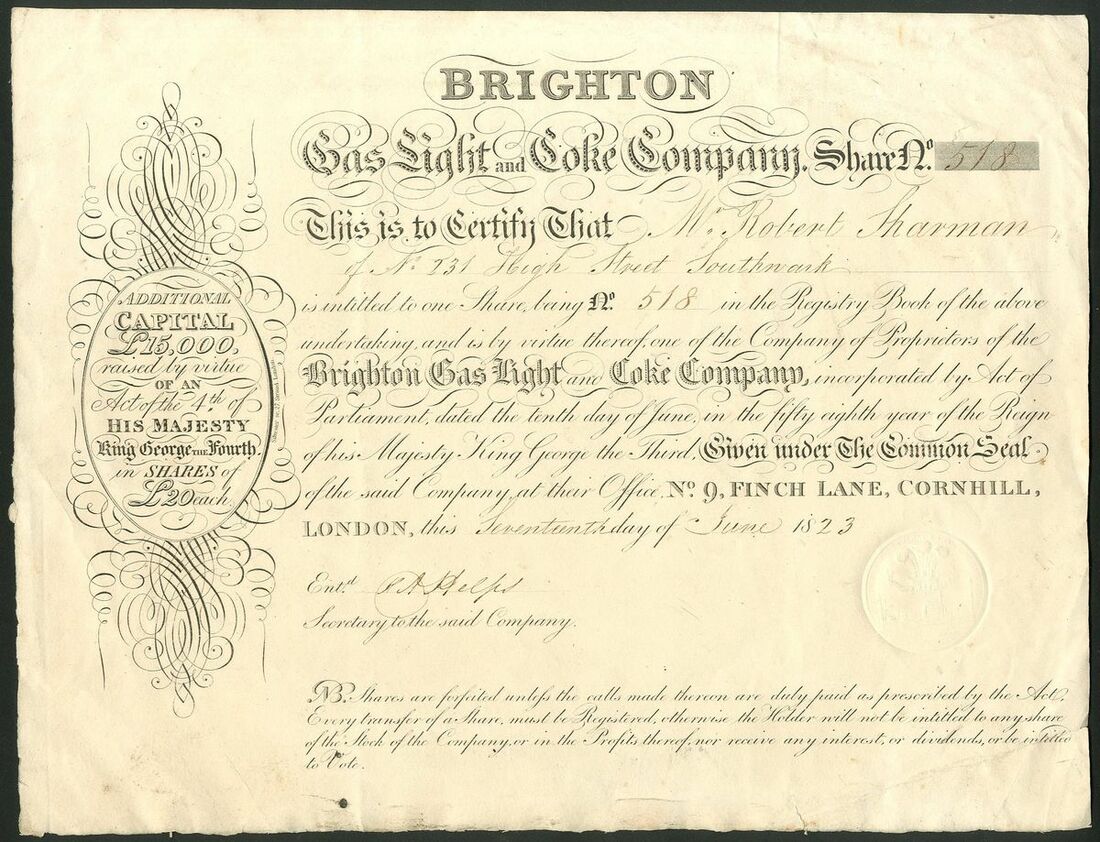 BRIGHTON
Gas Light and Coke Company. Share No. 518
This is to Certify That Mr. Robert Sharman
of No 231 High Street Southwark
is intitled to one Share, being No. 518 in the Registry Book of the above
undertaking, and is by virtue thereof, one of the Company of Proprietors of the
Brighton Gas Light and Coke Company, incorporated by Act of
Parliament, dated the tenth day of June, in the fifty eighth year of the Reign
of his Majesty King George the Third, Given under The Common Seal
of the said Company, at their Office, No. 9, FINCH LANE, CORNHILL,
LONDON, this Seventeenth day of June 1823
Entd.
Secretary to the said Company.
NB. Shares are forfeited unless the calls made thereon are duly paid as prescribed by the Act.
Every transfer of a Share, must be Registered, otherwise the Holder will not be intitled to any share
of the Stock of the Company, or in the Profits thereof, nor receive any interest, or dividends, or be intitled
to Vote.
ADDITIONAL
CAPITAL
£15,000,
raised by virtue
OF AN
Act of the 4th. of
HIS MAJESTY
King George THE Fourth.
in SHARES of
£20 each